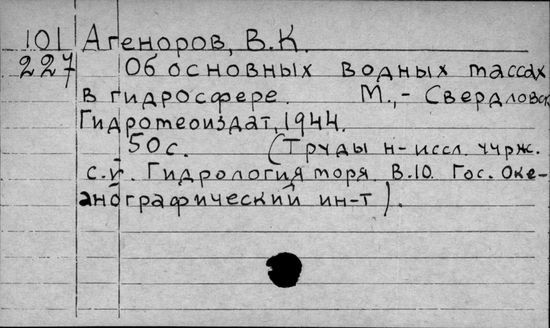 101 Агеноров, В.К.
227 Об основных водных массах
в гидросфере. М.,- Свердловск
Гидрометеоиздат, 1944.
50 с. (Труды н-иссл. учрж.
с.у. Гидрология моря. В.10. Гос. Оке-
анографический ин-т).